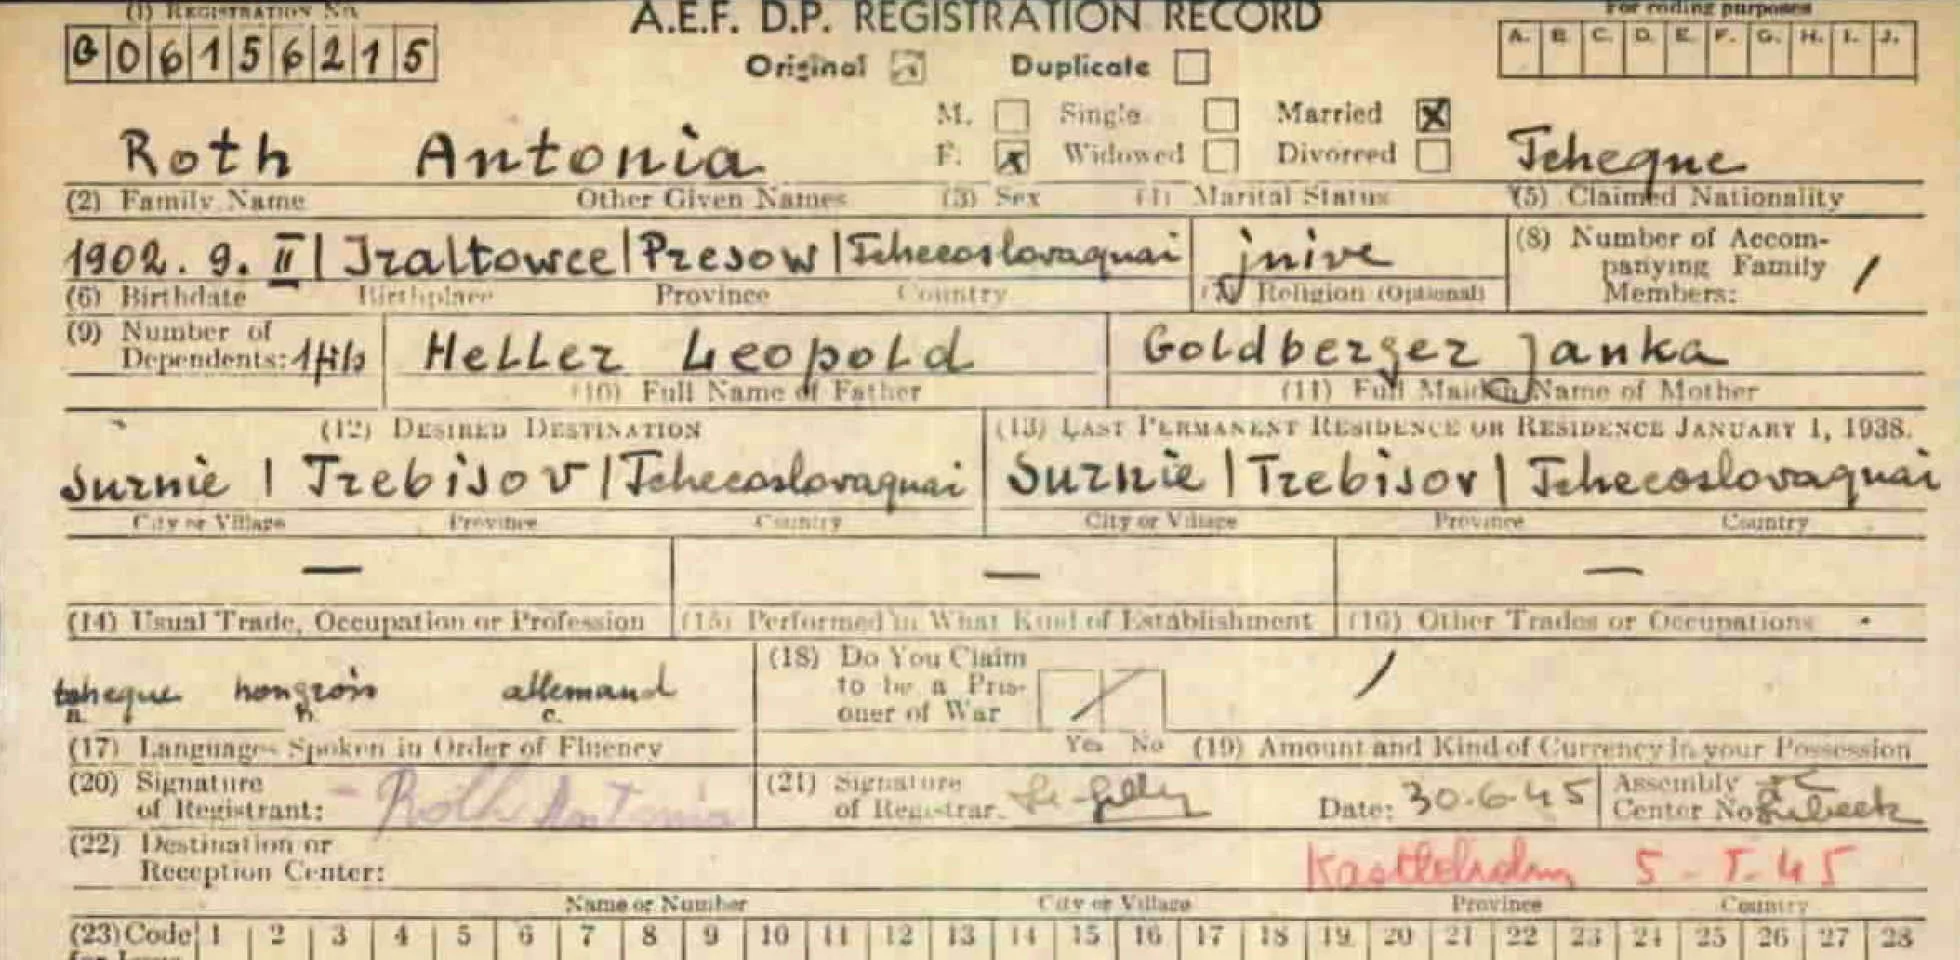 (1) REGISTRATION No.
A.E.F. D.P. REGISTRATION RECORD
For coding purposes
G06156215
Original Duplicate
A. B. C. D. E. F. G. H. I. J.
M. Single Married X
Roth Antonia F. x Widowed Divorced Tcheque
(2) Family Name Other Given Names (3) Sex (4) Marital Status (5) Claimed Nationality
1902. 9. II | Iraltowce | Presow | Tchecoslovaquai jnive
(8) Number of Accom-
panying Family
Members: /
(6) Birthdate Birthplace Province Country (7) Religion (Optional)
(9) Number of
Dependents: Heller Leopold Goldberger Janka
(10) Full Name of Father (11) Full Maiden Name of Mother
(12) DESIRED DESTINATION (13) LAST PERMANENT RESIDENCE OR RESIDENCE JANUARY 1, 1938.
Surnie | Trebisov | Tchecoslovaquai Surnie | Trebisov | Tchecoslovaquai
City or Village Province Country City or Village Province Country
— — —
(14) Usual Trade, Occupation or Profession (15) Performed in What Kind of Establishment (16) Other Trades or Occupations
tcheque hongrois allemand
a. b. c.
(18) Do You Claim
to be a Pris-
oner of War /
(17) Languages Spoken in Order of Fluency Yes No (19) Amount and Kind of Currency in your Possession
(20) Signature
of Registrant: - Roth Antonia
(21) Signature
of Registrar. Date: 30.6.45
Assembly
Center No. Lubeck
(22) Destination or
Reception Center: 5-7-45
Name or Number City or Village Province Country
(23) Code 1 2 3 4 5 6 7 8 9 10 11 12 13 14 15 16 17 18 19 20 21 22 23 24 25 26 27 28
for Issue